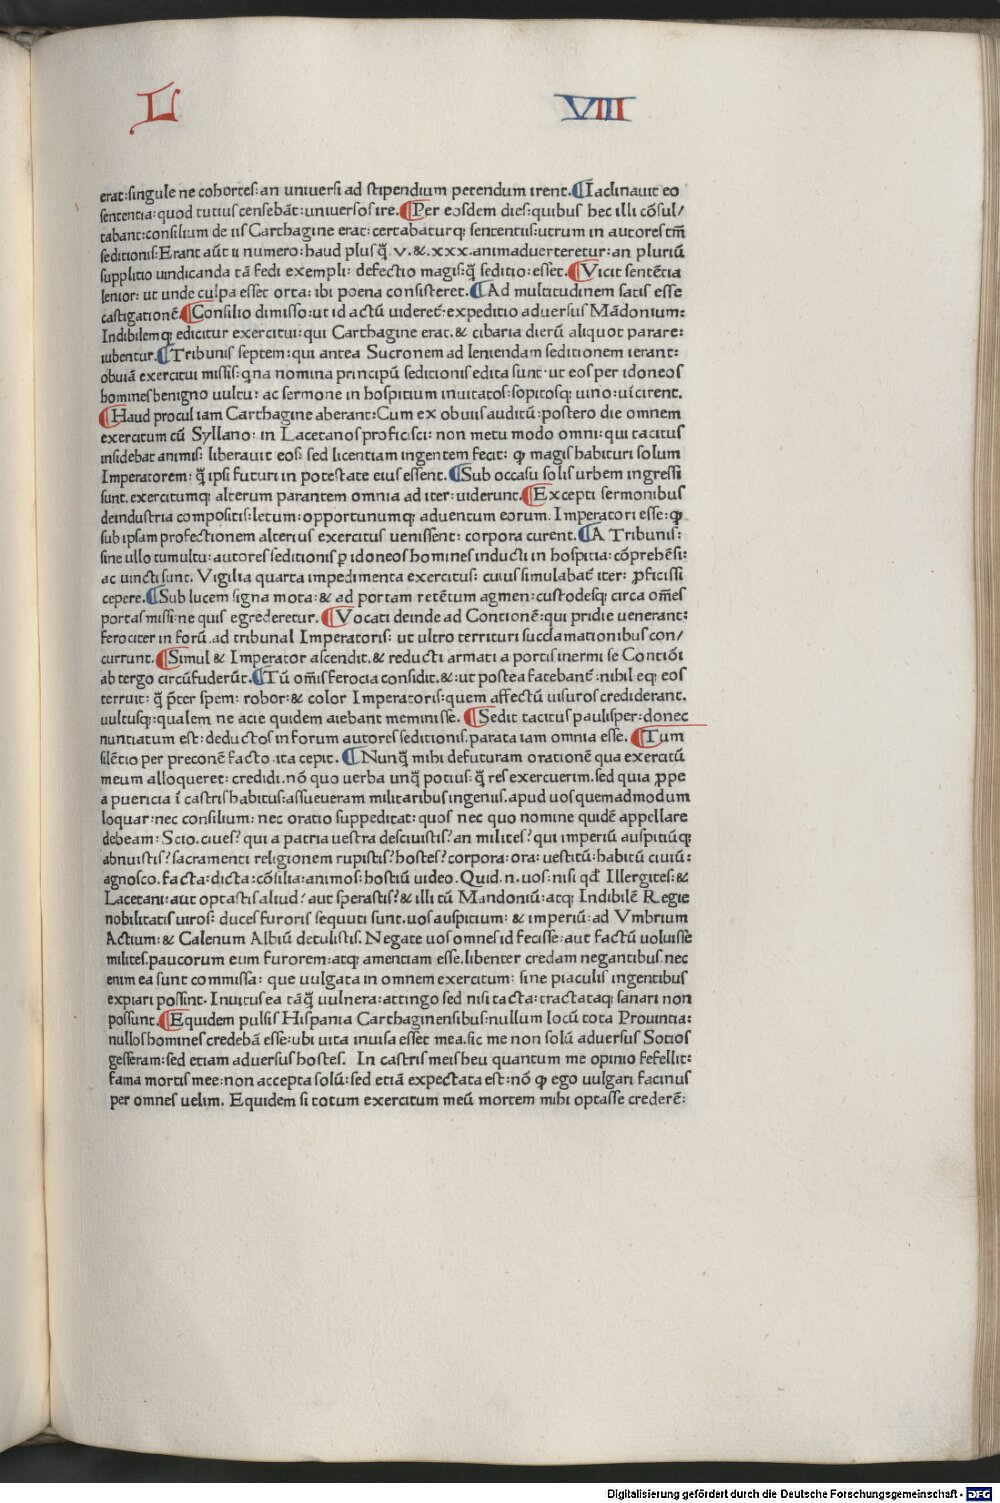 L VIII
erat:singule ne cohortes:an uniuersi ad stipendium petendum irent.¶Iaclinauit eo
sententia:quod tutius censebāt:uniuersos ire.¶Per eosdem dies:quibus hec illi cōsul/
tabant:consilium de iis Carthagine erat:certabaturq; sententiis:utrum in autores tm̄
seditionis:Erant aūt ii numero:haud plus q̄. v.&.xxx.animaduerteretur:an pluriū
supplitio uindicanda tā fedi exempli: defectio magis:q̄ seditio:esset.¶Vicit sentētia
lenior: ut unde culpa esset orta: ibi poena consisteret.¶Ad multitudinem satis esse
castigationē.¶Consilio dimisso:ut id actū uideret̄:expeditio aduersus Mādonium:
Indibilemq; edicitur exercitui:qui Carthagine erat.& cibaria dierū aliquot parare:
iubentur.¶Tribunis septem:qui antea Sucronem ad leniendam seditionem ierant:
obuiā exercitui missis:qna nomina principū seditionis edita sunt·ut eos per idoneos
homines benigno uultu: ac sermone in hospitium inuitatos:sopitosq; uino:uīcirent.
¶Haud procul iam Carthagine aberant:Cum ex obuiis auditū:postero die omnem
exercitum cū Syllano: in Lacetanos proficisci: non metu modo omni:qui tacitus
insidebat animis: liberauit eos: sed licentiam ingentem fecit: ꝙ magis habituri solum
Imperatorem: q̄ ipsi futuri in potestate eius essent.¶Sub occasu solis urbem ingressi
sunt.exercitumq; alterum parantem omnia ad iter:uiderunt.¶Excepti sermonibus
deindustria compositis:letum:opportunumq; aduentum eorum.Imperatori esse:ꝙ
sub ipsam profectionem alterius exercitus uenissent: corpora curent.¶A Tribunis:
sine ullo tumultu:autores seditionis ꝑ idoneos homines inducti in hospitia:cōprehēsi:
ac uincti sunt. Vigilia quarta impedimenta exercitus: cuius simulabat̄ iter: ꝓficissi
cepere.¶Sub lucem signa mota:& ad portam retētum agmen:custodesq; circa om̄es
portas missi:ne quis egrederetur.¶Vocati deinde ad Contionē:qui pridie uenerant:
ferociter in forū.ad tribunal Imperatoris: ut ultro territuri succlamationibus con/
currunt.¶Simul & Imperator ascendit.& reducti armati a portis inermi se Contiōi
ab tergo circūfuderūt.¶Tū om̄is ferocia consìdit.&:ut postea fatebant̄:nihil eq; eos
terruit: q̄ p̄ter spem: robor:& color Imperatoris:quem affectū uisuros crediderant.
uultusq;:qualem ne acie quidem aiebant meminisse.¶Sedit tacitus paulisper:donec
nuntiatum est:deductos in forum autores seditionis.parata iam omnia esse.¶Tum
silētio per preconē facto.ita cepit.¶Nunq̄ mihi defuturam orationē qua exercitū
meum alloqueret: credidi.nō quo uerba unq̄ potius:q̄ res exercuerim.sed quia ꝓpe
a puericia ī castris habitus:assueueram militaribus ingeniis.apud uos quemadmodum
loquar:nec consilium: nec oratio suppeditat:quos nec quo nomine quidē appellare
debeam:Scio.ciues?qui a patria uestra desciuistis?an milites?qui imperiū auspitiūq;
abnuistis?sacramenti religionem rupistis?hostes?corpora:ora:uestitū:habitū ciuiū:
agnosco.facta:dicta:cōsilia:animos:hostiū uideo.Quid.n.uos:nisi qđ Illergites:&
Lacetani:aut optastis aliud?aut sperastis?& illi tū Mandoniū:atq; Indibilē Regie
nobilitatis uiros: duces furoris sequuti sunt.uos auspitium: & imperiū:ad Vmbrium
Actium:& Calenum Albiū detulistis.Negate uos omnes id fecisse:aut factū uoluisse
milites.paucorum eum furorem:atq; amentiam esse.libenter credam negantibus.nec
enim ea sunt commissa: que uulgata in omnem exercitum: sine piaculis ingentibus
expiari possint.Inuitus ea tāq̄ uulnera:attingo sed nisi tacta:tractataq; sanari non
possunt.¶Equidem pulsis Hispania Carthaginensibus:nullum locū tota Prouintia:
nullos homines credebā esse:ubi uita inuisa esset mea.sic me non solū aduersus Sotios
gesseram:sed etiam aduersus hostes. In castris meis heu quantum me opinio fefellit:
fama mortis mee:non accepta solū:sed etiā expectata est:nō ꝙ ego uulgari facinus
per omnes uelim. Equidem si totum exercitum meū mortem mihi optasse crederē:
Digitalisierung gefördert durch die Deutsche Forschungsgemeinschaft - DFG